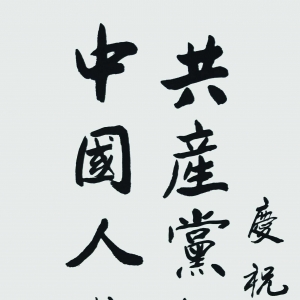 慶祝
共產黨
中國人